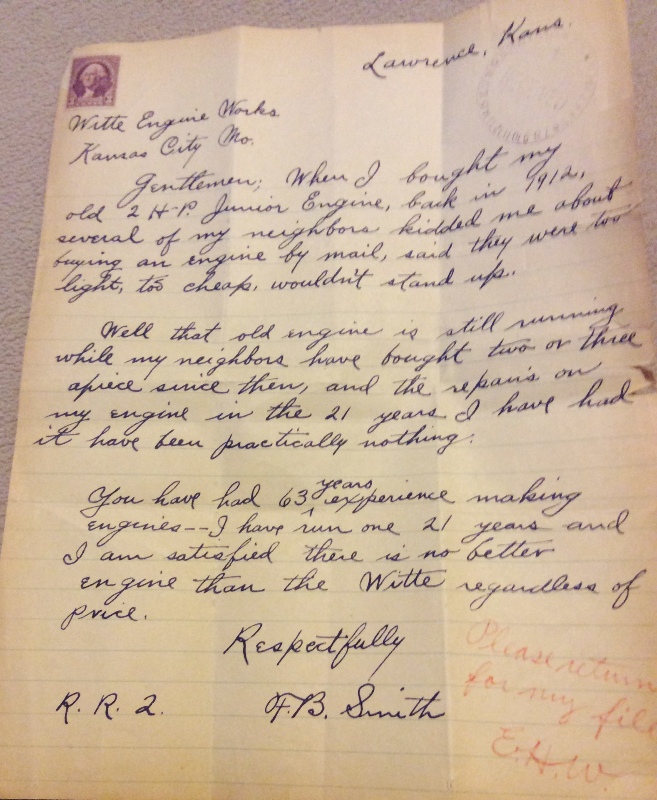 Lawrence, Kans.
Witte Engine Works
Kansas City Mo.
Gentlemen; When I bought my
old 2 H-P. Junior Engine, back in 1912,
several of my neighbors kidded me about
buying an engine by mail, said they were too
light, too cheap, wouldn't stand up.
Well that old engine is still running
while my neighbors have bought two or three
apiece since then, and the repairs on
my engine in the 21 years I have had
it have been practically nothing.
You have had 63 years experience making
engines--I have run one 21 years and
I am satisfied there is no better
engine than the Witte regardless of
price.
Respectfully
R. R. 2.
F.B. Smith
Please return
for my file
E.H.W.